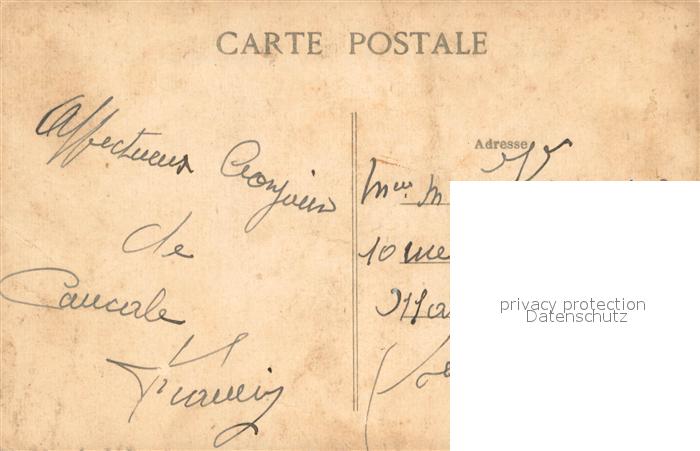 CARTE POSTALE
Affectueux Bonjour
de
Cancale
Adresse
M
10 rue
privacy protection
Datenschutz